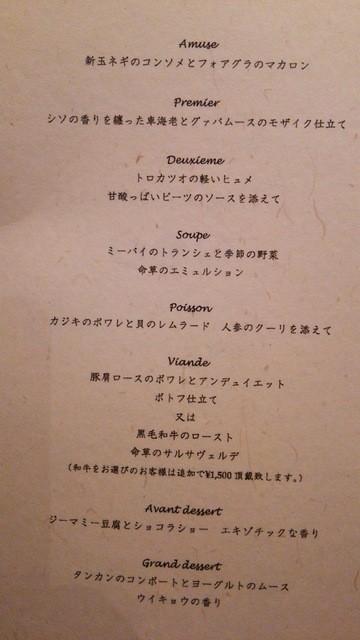 Amuse
新玉ネギのコンソメとフォアグラのマカロン
Premier
シソの香りを纏った車海老とグァバムースのモザイク仕立て
Deuxieme
トロカツオの軽いヒュメ
甘酸っぱいビーツのソースを添えて
Soupe
ミーバイのトランシェと季節の野菜
命草のエミュルション
Poisson
カジキのポワレと貝のレムラード 人参のクーリを添えて
Viande
豚肩ロースのポワレとアンデュイエット
ポトフ仕立て
又は
黒毛和牛のロースト
命草のサルサヴェルデ
(和牛をお選びのお客様は追加で¥1,500 頂戴致します。)
Avant dessert
ジーマミー豆腐とショコラショー エキゾチックな香り
Grand dessert
タンカンのコンポートとヨーグルトのムース
ウイキョウの香り